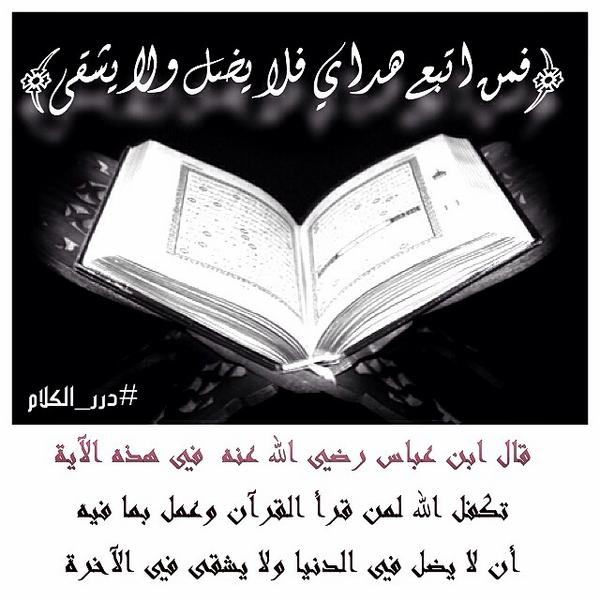 ﴿فمن اتبع هداي فلا يضل ولا يشقى﴾
#درر_الكلام
قال ابن عباس رضي الله عنه في هذه الآية
تكفل الله لمن قرأ القرآن وعمل بما فيه
أن لا يضل في الدنيا ولا يشقى في الآخرة